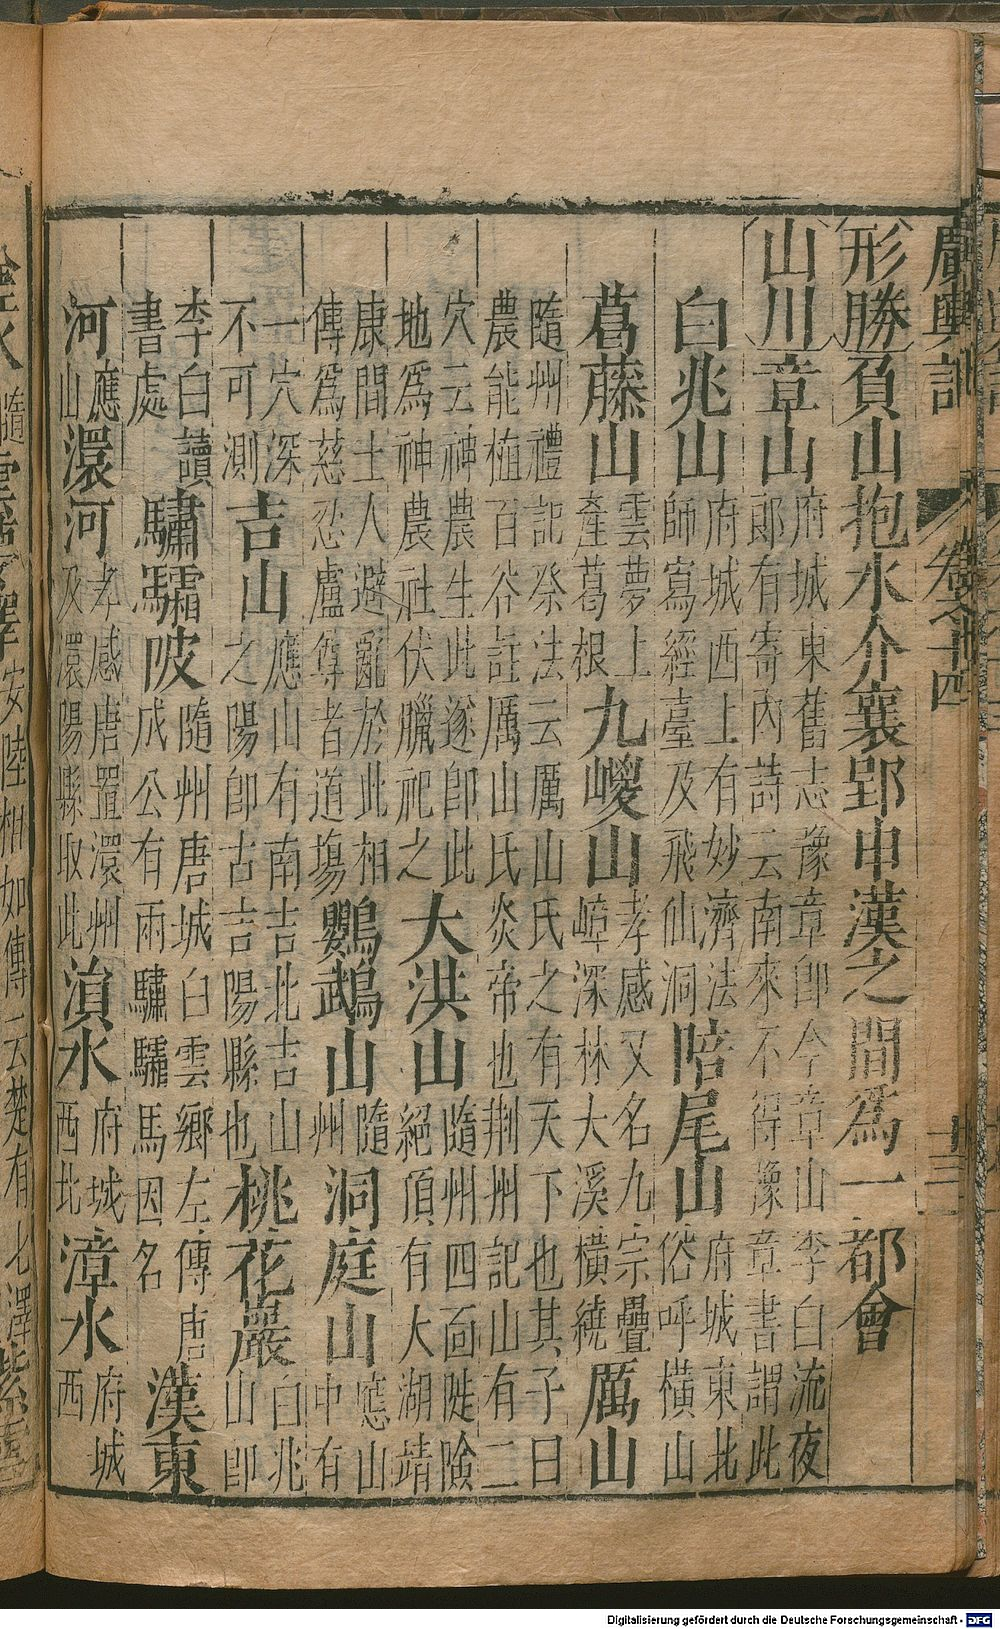 廣輿記 卷之十四 十三
形勝 負山抱水介襄郢申漢之間爲一都會
山川 章山 府城東舊志豫章卽今章山李白流夜
郎有寄內詩云南來不得豫章書謂此
白兆山 府城西上有妙濟法
師寫經臺及飛仙洞 陪尾山 府城東北
俗呼橫山
葛藤山 雲夢上
產葛根 九嵕山 孝感又名九宗疊
嶂深林大溪橫繞 厲山
隨州禮記祭法云厲山氏之有天下也其子曰
農能植百谷註厲山氏炎帝也荆州記山有二
穴云神農生此遂卽此
地爲神農社伏臘祀之 大洪山 隨州四面陡險
絕頂有大湖靖
康間士人避亂於此相
傳爲慈忍盧尊者道塲 鸚鵡山 隨
州 洞庭山 應山
中有
一穴深
不可測 吉山 應山有南吉北吉山
之陽卽古吉陽縣也 桃花巖 白兆
山卽
李白讀
書處 驌驦陂 隨州唐城白雲鄉左傳唐
成公有兩驌驦馬因名 漢東
河 應
山 澴河 孝感唐置澴州
及澴陽縣取此 溳水 府城
西北 漳水 府城
西
隨 雲夢澤 安陸相如傳云楚有七澤
Digitalisierung gefördert durch die Deutsche Forschungsgemeinschaft - DFG